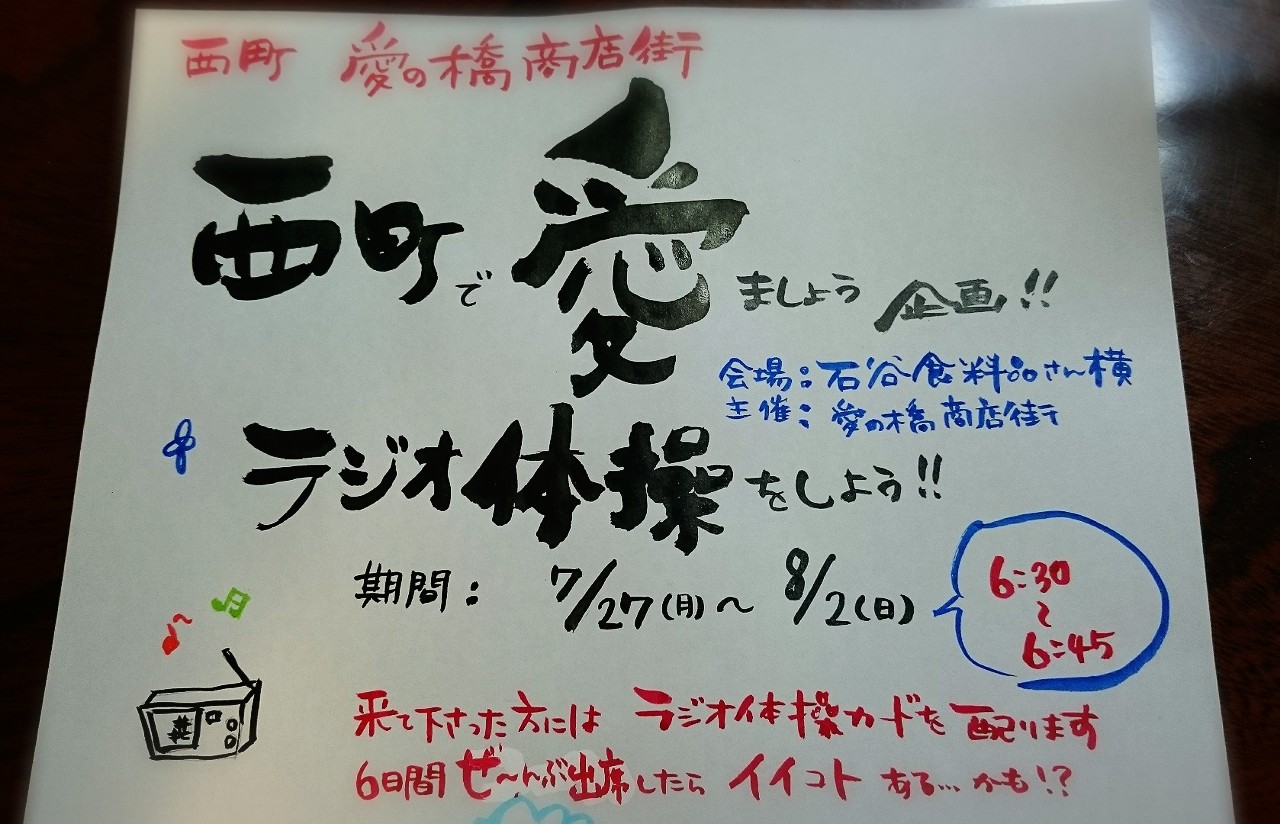 西町 愛の橋商店街
西町で愛ましょう 企画!!
会場:石谷食料品さん横
主催:愛の橋商店街
ラジオ体操をしよう!!
期間: 7/27(月)〜 8/2(日)
6:30
〜
6:45
来て下さった方には ラジオ体操カードを配ります
6日間 ぜ〜んぶ出席したら イイコト ある…かも!?